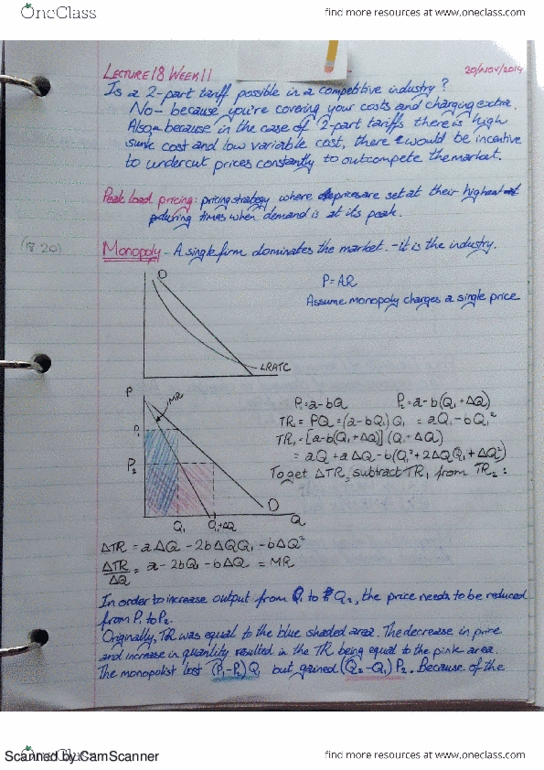 OneClass
find more resources at www.oneclass.com
LECTURE 18 WEEK 11
20/NOV/2014
Is a 2-part tariff possible in a competitive industry?
No- because you're covering your costs and charging extra.
Also- because in the case of 2-part tariffs there is high
sunk cost and low variable cost, there would be incentive
to undercut prices constantly to outcompete the market.
Peak load pricing: pricing strategy where prices are set at their highest
during times when demand is at its peak.
Monopoly - A single firm dominates the market. - it is the industry.
D
P=AR
Assume monopoly charges a single price
LRATC
P
MR
P₁
P₂
D
Q₁
Q₁+ΔQ
Q
P₁=a-bQ
P₂=a-b(Q₁+ΔQ)
TR = PQ = (a-bQ₁)Q₁ = aQ₁-bQ₁²
TR₁=[a-b(Q₁+ΔQ)](Q₁+ΔQ)
= aQ+aΔQ-b(Q₁²+2ΔQQ₁+ΔQ²)
To get ΔTR, subtract TR₁ from TR₂:
ΔTR = aΔQ-2bΔQQ₁-bΔQ²
ΔTR/ΔQ = a-2bQ₁-bΔQ = MR
In order to increase output from Q₁ to Q₂, the price needs to be reduced
from P₁ to P₂.
Originally, TR was equal to the blue shaded area. The decrease in price
and increase in quantity resulted in the TR being equal to the pink area.
The monopolist lost (P₁-P₂)Q₁ but gained (Q₂-Q₁)P₂. Because of the
Scanned by CamScanner
OneClass
find more resources at www.oneclass.com